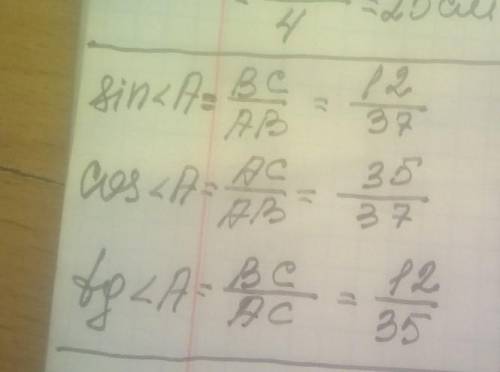 4 = 25 см
sin<A = BC/AB = 12/37
cos<A = AC/AB = 35/37
tg<A = BC/AC = 12/35